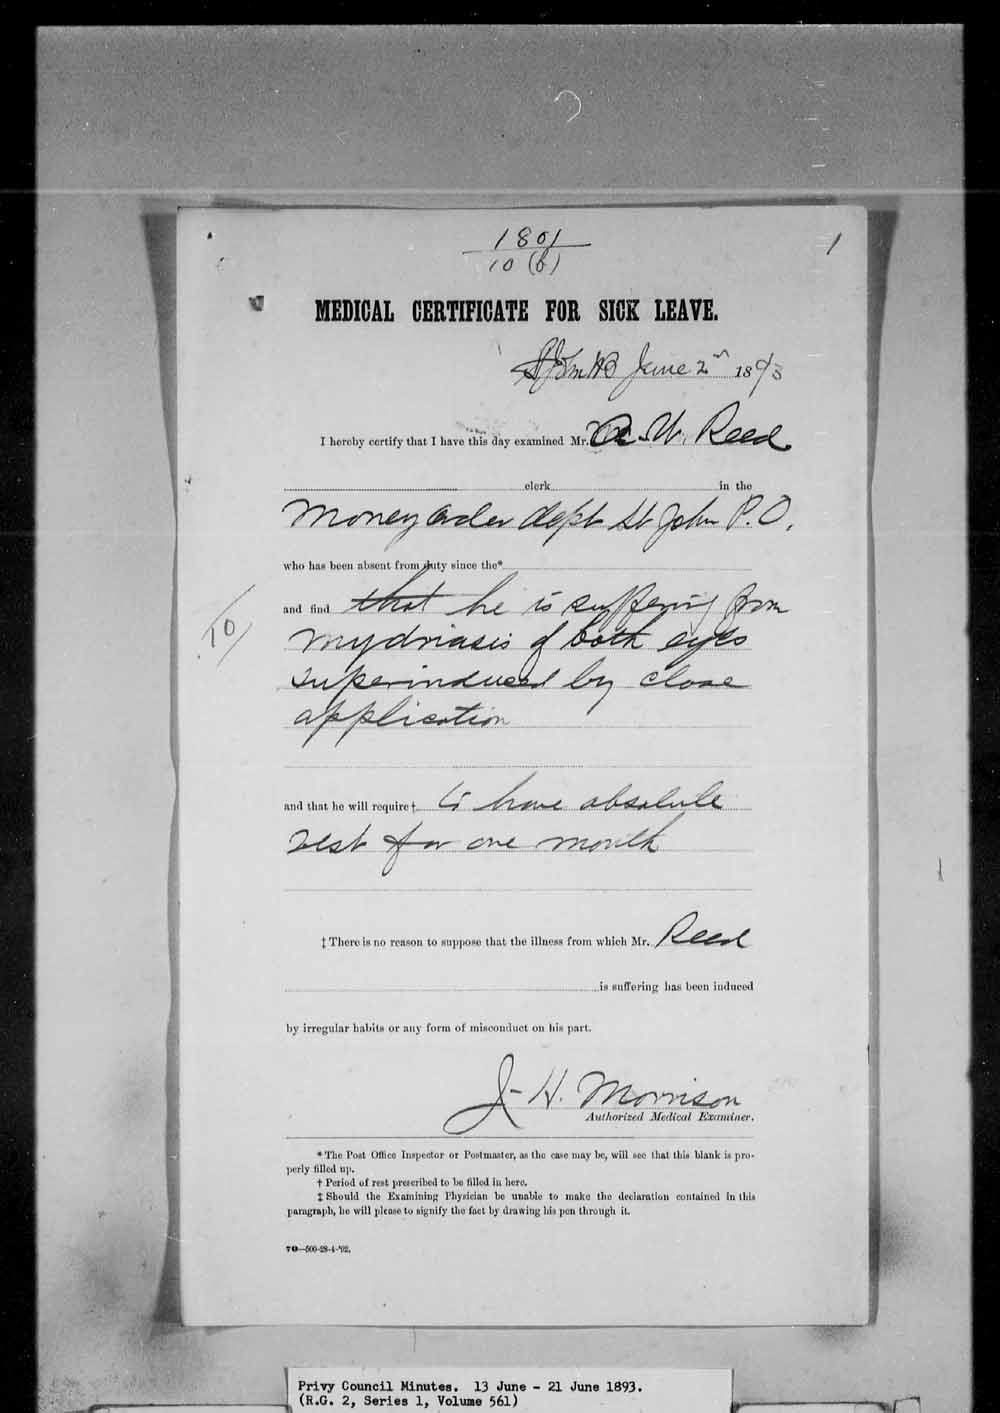 1801
10 (b)
1
MEDICAL CERTIFICATE FOR SICK LEAVE.
St John NB June 2nd 1893
I hereby certify that I have this day examined Mr. A. W. Reed
clerk in the
Money order dept St John P.O.
who has been absent from duty since the*
and find that he is suffering from
10
mydriasis of both eyes
superinduced by close
application
and that he will require† to have absolute
rest for one month
‡ There is no reason to suppose that the illness from which Mr. Reed
is suffering has been induced
by irregular habits or any form of misconduct on his part.
J. H. Morrison
Authorized Medical Examiner.
* The Post Office Inspector or Postmaster, as the case may be, will see that this blank is pro-
perly filled up.
† Period of rest prescribed to be filled in here.
‡ Should the Examining Physician be unable to make the declaration contained in this
paragraph, he will please to signify the fact by drawing his pen through it.
70—500-28-4-'92.
Privy Council Minutes. 13 June - 21 June 1893.
(R.G. 2, Series 1, Volume 561)